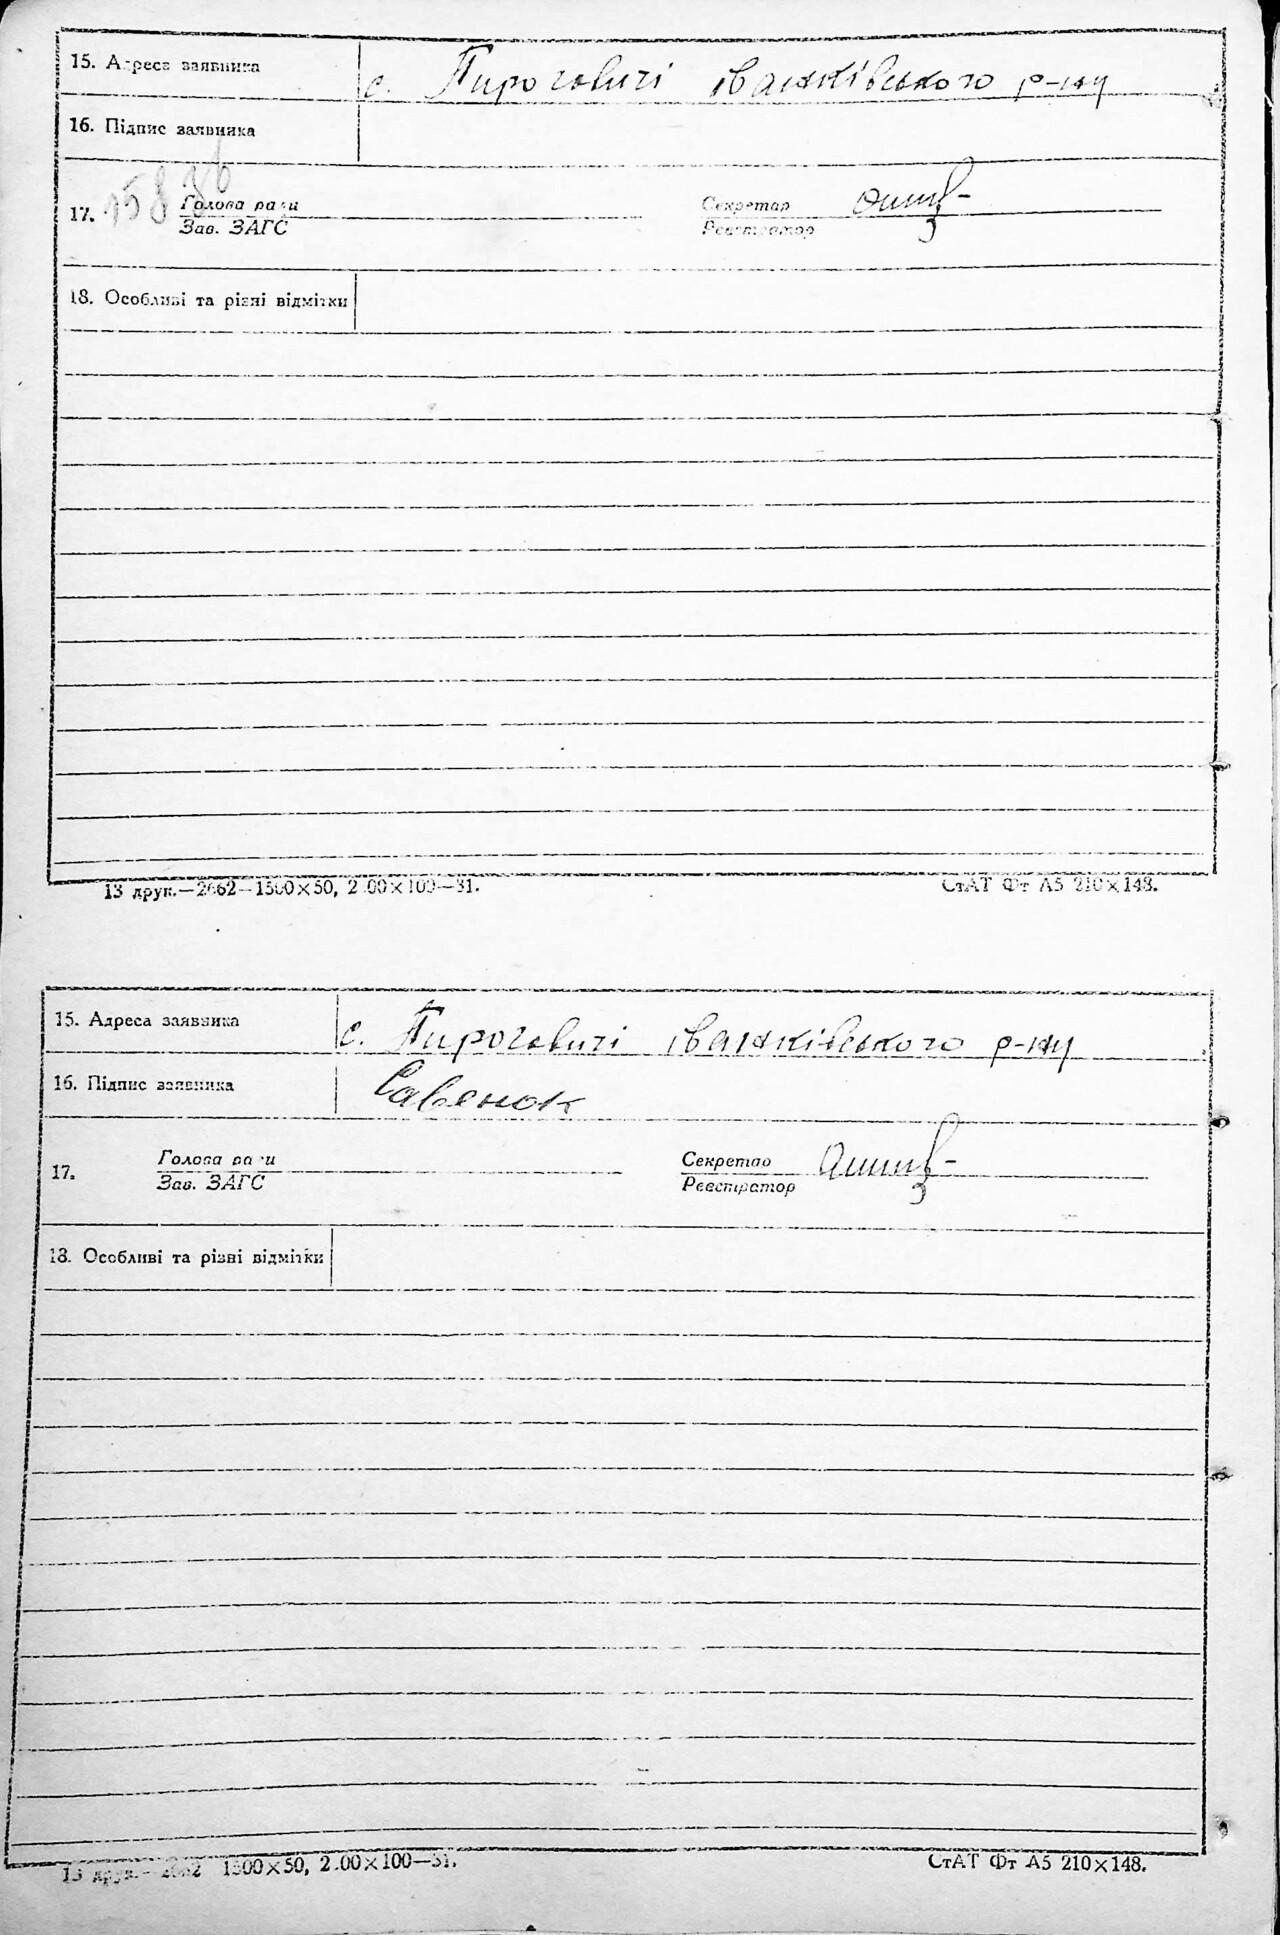 15. Адреса заявника с. Пироговичі іванківського р-ну
16. Підпис заявника
Голова ради Секретар
17. 158 зв
Зав. ЗАГС Реєстратор
18. Особливі та різні відмітки
13 друк.—2662—1500×50, 2.00×100—31. СтАТ Фт А5 210×148.
15. Адреса заявника с. Пироговичі іванківського р-ну
16. Підпис заявника Савенок
Голова ради Секретар
17.
Зав. ЗАГС Реєстратор
18. Особливі та різні відмітки
13 друк.—2662 1500×50, 2.00×100—31. СтАТ Фт А5 210×148.